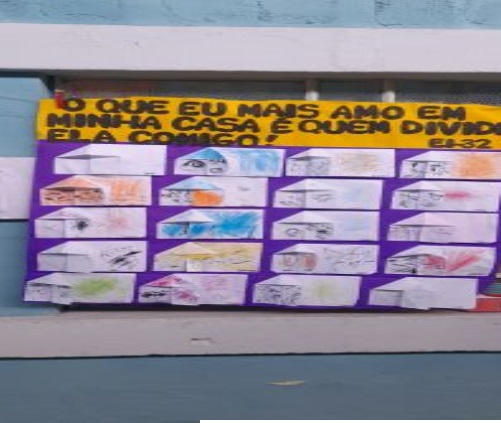 O QUE EU MAIS AMO EM
MINHA CASA É QUEM DIVIDE
ELA COMIGO!
EI-32